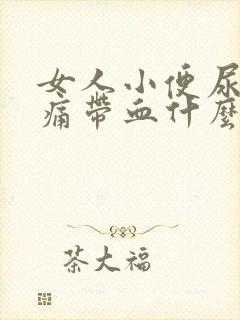 女人小便尿
痛带血什麼
茶大福